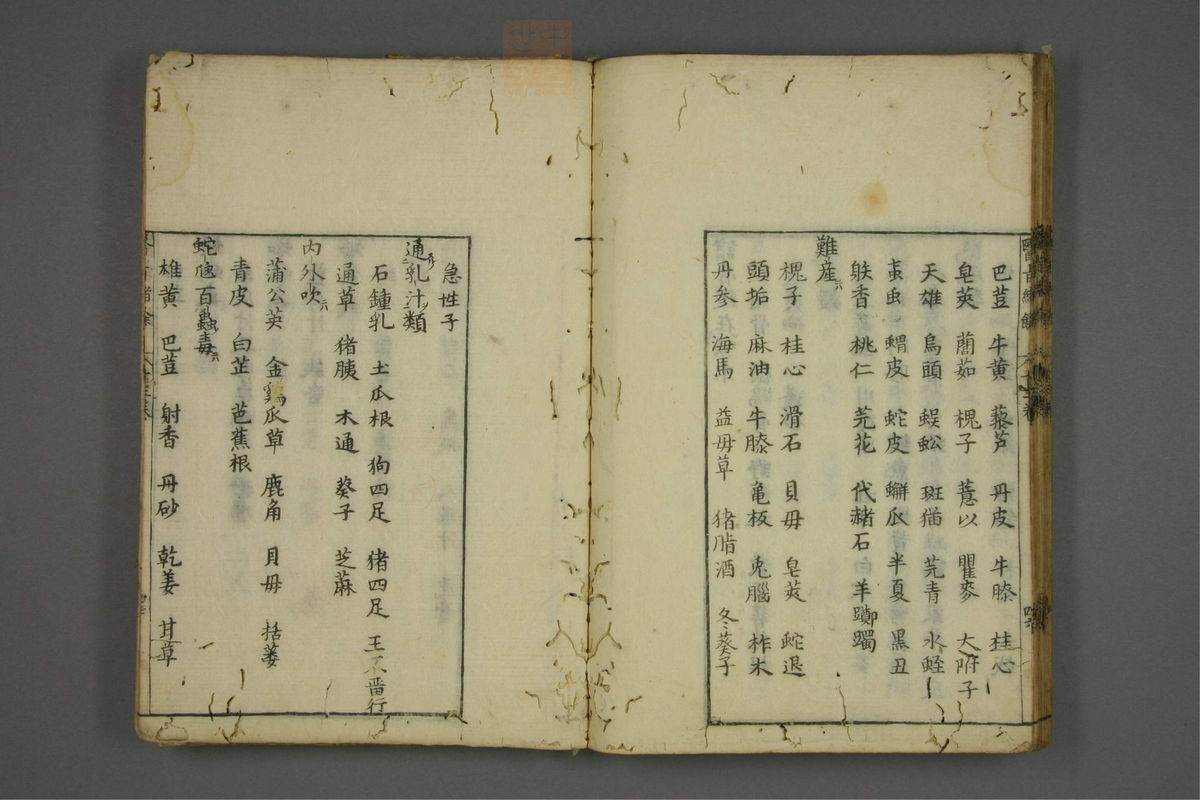 巴荳 牛黄 藜芦 丹皮 牛膝 桂心
皂莢 藺茹 槐子 薏以 瞿麥 大附子
天雄 烏頭 蜈蚣 斑猫 芫青 水蛭
虻虫 蝟皮 蛇皮 蠏爪 半夏 黒丑
麝香 桃仁 芫花 代赭石 羊躑躅
難産六
槐子 桂心 滑石 貝毋 皂莢 蛇退
頭垢 麻油 牛膝 亀板 兎腦 柞木
丹参 海馬 益毋草 猪脂酒 冬葵子
急性子
通乳汁類
石鍾乳 土瓜根 狗四足 猪四足 王不畱行
通草 猪胰 木通 葵子 芝蔴
内外吹六
蒲公英 金鷄瓜草 鹿角 貝毋 括蔞
青皮 白芷 芭蕉根
蛇虺百蟲毒六
雄黄 巴荳 射香 丹砂 乾姜 甘草